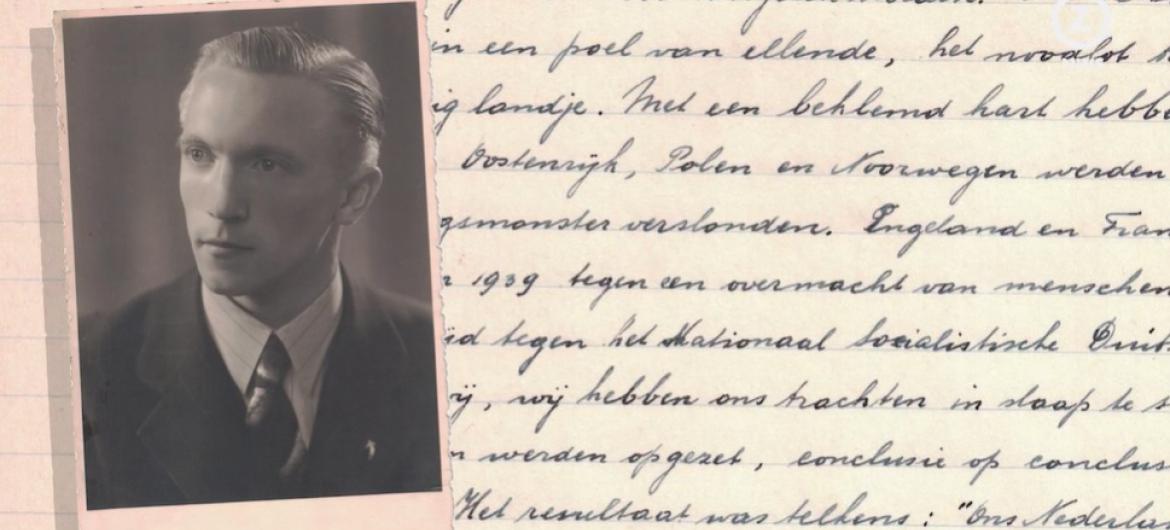 in een poel van ellende, het noodlot
landje. Met een beklemd hart hebbe
Oostenrijk, Polen en Noorwegen werden
gsmonster verslonden. Engeland en Fran
1939 tegen een overmacht van menschen
tegen het Nationaal Socialistische Duits
wij hebben ons trachten in slaap te s
werden opgezet, conclusie op conclus
Het resultaat was telkens: "Ons Nederla